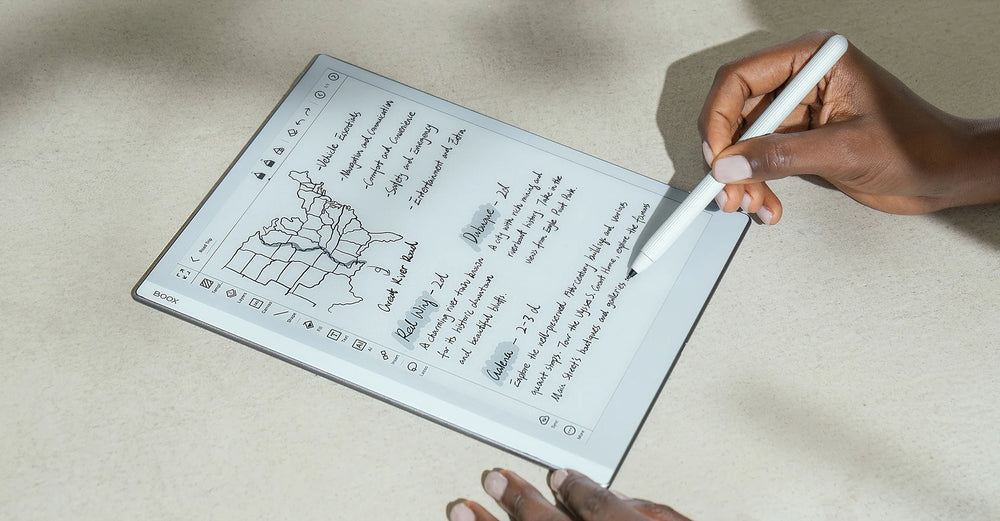 BOOX
Road Trip
Layers
Text
AI
Lasso
Sync
More
Great River Road
-Vehicle Essentials
-Navigation and Communication
-Comfort and Convenience
-Safety and Emergency
-Entertainment and Extra
Red Wing - 2d
A charming river town known
for its historic downtown
and beautiful bluffs.
Dubuque - 2d
A city with rich mining and
riverboat history. Take in the
views from Eagle Point Park.
Galena - 2-3 d
Explore the well-preserved 19th-century buildings and various
quaint shops. Tour the Ulysses S. Grant Home, explore the famous
Main Street's boutiques and galleries